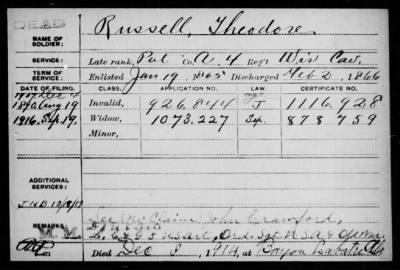 DEAD
NAME OF SOLDIER: Russell, Theodore.
TERM OF SERVICE: Late rank, Pvt Co. A, 4 Reg't Wis Cav.
Enlisted Jan 19, 1865 Discharged 2, 1866
DATE OF FILING. CLASS. APPLICATION NO. LAW. CERTIFICATE NO.
1890 Aug 19 Invalid, 926.844 J 1.116.928
1916. Sep. 19. Widow, 1.073.227 Sep. 873 759
Minor,
ADDITIONAL SERVICES:
REMARKS: See Claim, John Crawford,
Died Dec 8, 1914, at Bayou Labatre Ala